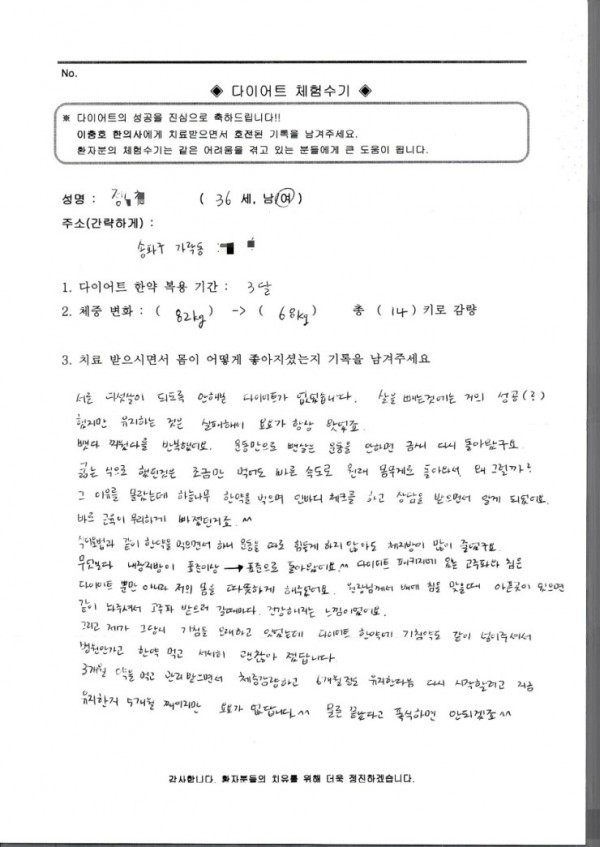 No.
◈ 다이어트 체험수기 ◈
※ 다이어트의 성공을 진심으로 축하드립니다!!
이충호 한의사에게 치료받으면서 호전된 기록을 남겨주세요.
환자분의 체험수기는 같은 어려움을 겪고 있는 분들에게 큰 도움이 됩니다.
성명 : 정 ( 36 세, 남/여 )
주소(간략하게) :
송파구 가락동
1. 다이어트 한약 복용 기간 : 3달
2. 체중 변화 : ( 82kg ) -> ( 68kg ) 총 ( 14 )키로 감량
3. 치료 받으시면서 몸이 어떻게 좋아지셨는지 기록을 남겨주세요
서른 여섯살이 되도록 안해본 다이어트가 없었습니다. 살을 빼는것에는 거의 성공(?)
했지만 유지하는 것은 실패해서 요요가 항상 왔었죠.
뺐다 쪘었다를 반복했어요. 운동만으로 뺀살은 운동을 안하면 금세 다시 돌아왔구요.
굶는 식으로 했던것은 조금만 먹어도 빠른 속도로 원래 몸무게로 돌아와서 왜 그럴까?
그 이유를 몰랐는데 하늘나무 한약을 먹으며 인바디 체크를 하고 상담을 받으면서 알게 되었어요.
바로 근육이 무리하게 빠졌던거죠.^^
식이요법과 같이 한약을 먹으면서 하니 운동을 따로 힘들게 하지 않아도 체지방이 많이 줄었구요.
무엇보다 내장지방이 표준이상 → 표준으로 돌아왔어요.^^ 다이어트 패키지에 있는 고주파와 침은
다이어트 뿐만 아니라 저의 몸을 따뜻하게 해주었어요. 원장님께서 배에 침을 맞을때 아픈곳이 있으면
같이 놔주셔서 고주파 받으러 갈때마다 건강해지는 느낌이었어요.
그리고 제가 그당시 기침을 오래하고 있었는데 다이어트 한약에 기침약도 같이 넣어주셔서
병원안가고 한약 먹고 서서히 괜찮아 졌답니다.
3개월 약을 먹고 관리받으면서 체중감량하고 6개월정도 유지한다음 다시 시작할려고 지금
유지한지 5개월 째이지만 요요가 없답니다.^^ 물론 끝났다고 폭식하면 안되겠죠^^
감사합니다. 환자분들의 치유를 위해 더욱 정진하겠습니다.